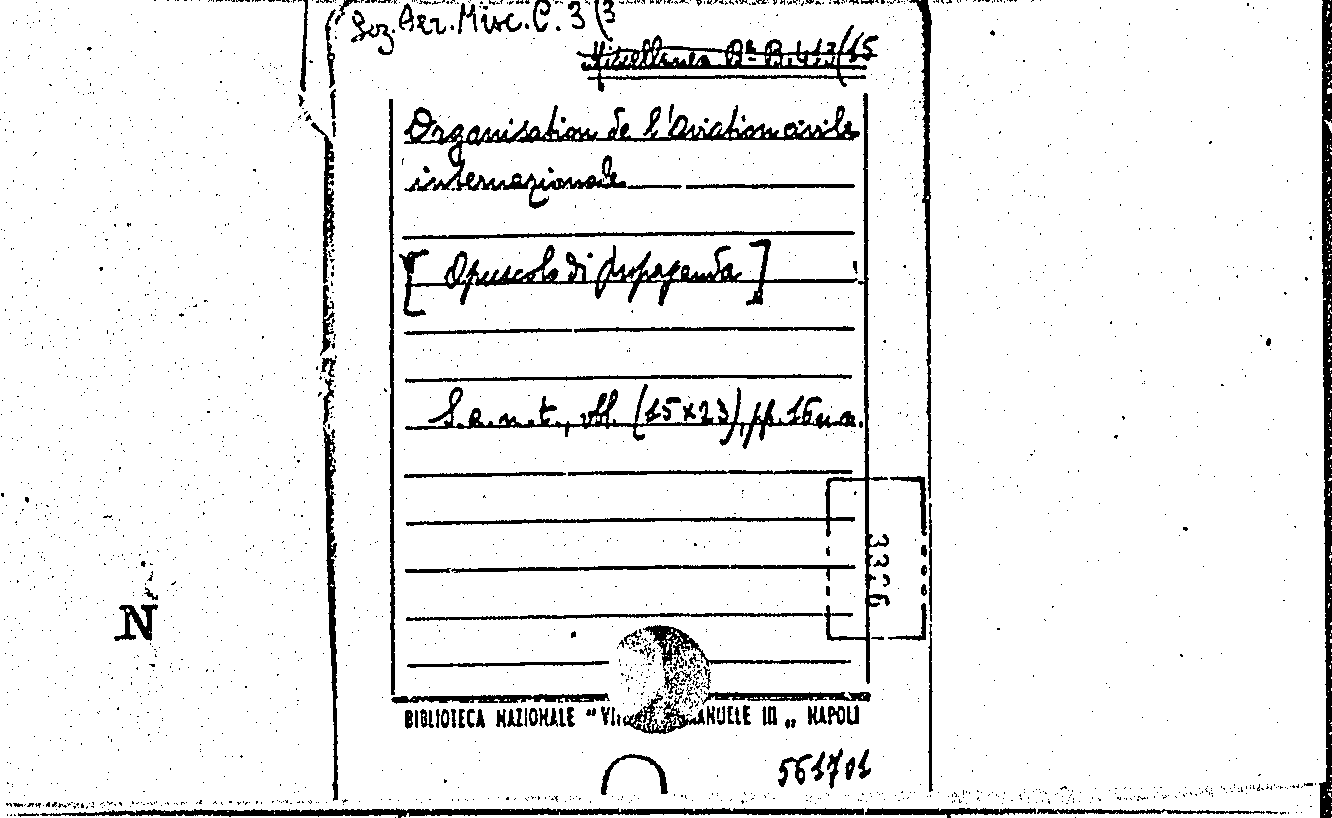 Sez. Aer. Misc. C. 3 (3
Miscellanea Bª B. 413/15
Organisation de l'aviation civile
internazionale
[ Opuscolo di propaganda ]
S. e. n. t., vol. (15x23), pp. 16 n.n.
3326
N
BIBLIOTECA NAZIONALE " VI ANUELE III " NAPOLI
561701